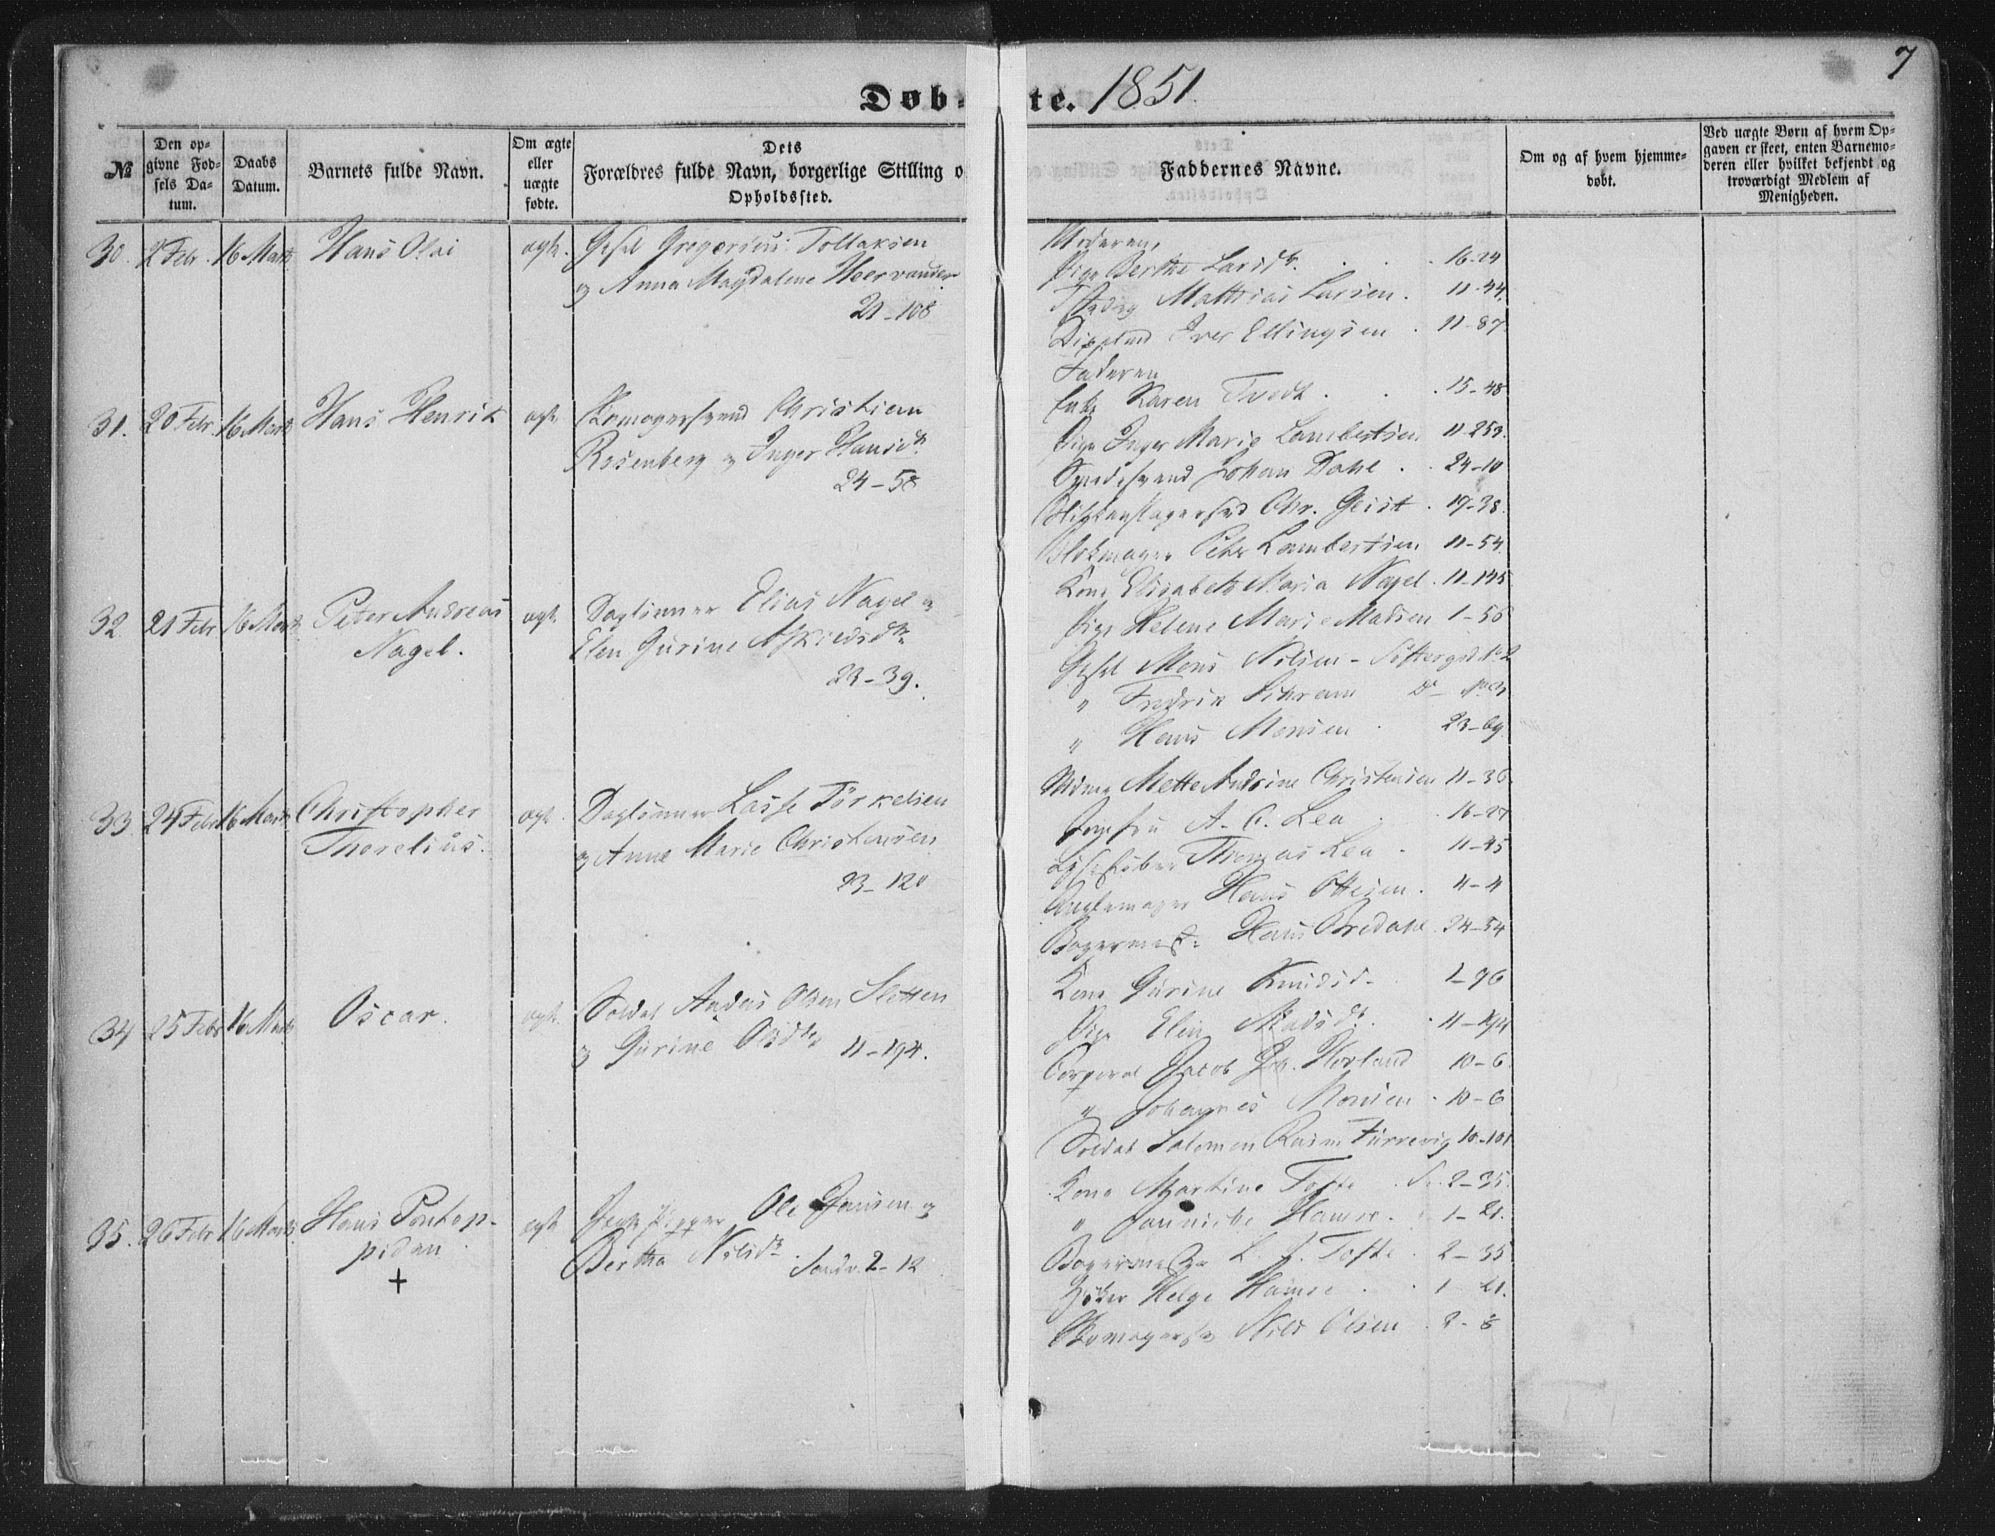 7
Døbte. 1851.
№
Den opgivne Fødsels Datum.
Daabs Datum.
Barnets fulde Navn.
Om ægte eller uægte fødte.
Dets Forældres fulde Navn, borgerlige Stilling o Opholdssted.
Faddernes Navne.
Om og af hvem hjemmedøbt.
Ved uægte Børn af hvem Opgaven er skeet, enten Barnemoderen eller hvilket bekjendt og troværdigt Medlem af Menigheden.
30. 2 Febr. 16 Marts Hans Olai ægte.
Gesel Gregorius Tollaksen
og Anna Magdalene Heervander
21-108
Moderen,
Pige Berthe Larsdtr. 16-24
Mathias Larsen. 11-44.
Iver Ellingsen 11-87
Faderen
31. 20 Febr. 16 Marts Hans Henrik ægte
Skomagersvend Christian
Rosenberg og Inger Hansdtr.
24-58
Enke Karen Tvedt 15-48
Pige Inger Marie Lambertsen 11-253.
Johan Dahl 24-10
Chr. Geist 19-38.
Blokmager Peter Lambertsen 11-54
32. 21 Febr. 16 Marts Peter Andreas
Nagel.
ægte
Daglønner Elias Nagel og
Elen Gurine Askildsdtr.
23-39.
Kone Elisabeth Maria Nagel. 11-145
Pige Helene Marie Madsen 1-56
Gesel Mons Nilsen
" Fredrik Schram
" Hans Monsen 23-69.
33. 24 Febr. 16 Marts Christopher
Thorelius.
ægte.
Daglønner Lasse Törkelsen
og Anne Marie Christensen
23-120
Mette Andrine Christensen 11-36
Jomfru A. C. Lea 16-27
Thomas Lea 11-45
Hans Ottesen. 4-4
Bagermester Hans Bredahl 24-54
34 25 Febr. 16 Marts Oscar. ægte.
Soldat Anders Olsen Sletten
og Gurine Olsdtr. 11-194.
Kone Gurine Knudsd. 1-96
Pige Elin Madsdtr. 11-194
Corporal Jacob Joh. Hovland 10-6
" Johannes Monsen 10-6
Soldat Salomon Rasm Furrevig 10-101
35. 26 Febr. 16 Marts Hans Pontoppidan
+
ægte
Ole Jansen og
Bertha Nilsdtr. Sandv. 2-12
Kone Martine Tofte S. 2-35.
" Jannicke Hamre. 1-21.
Bagermester L. J. Tofte 2-35
Høker Helge Hamre 1 21.
Skomagersv Nils Olsen 2-8